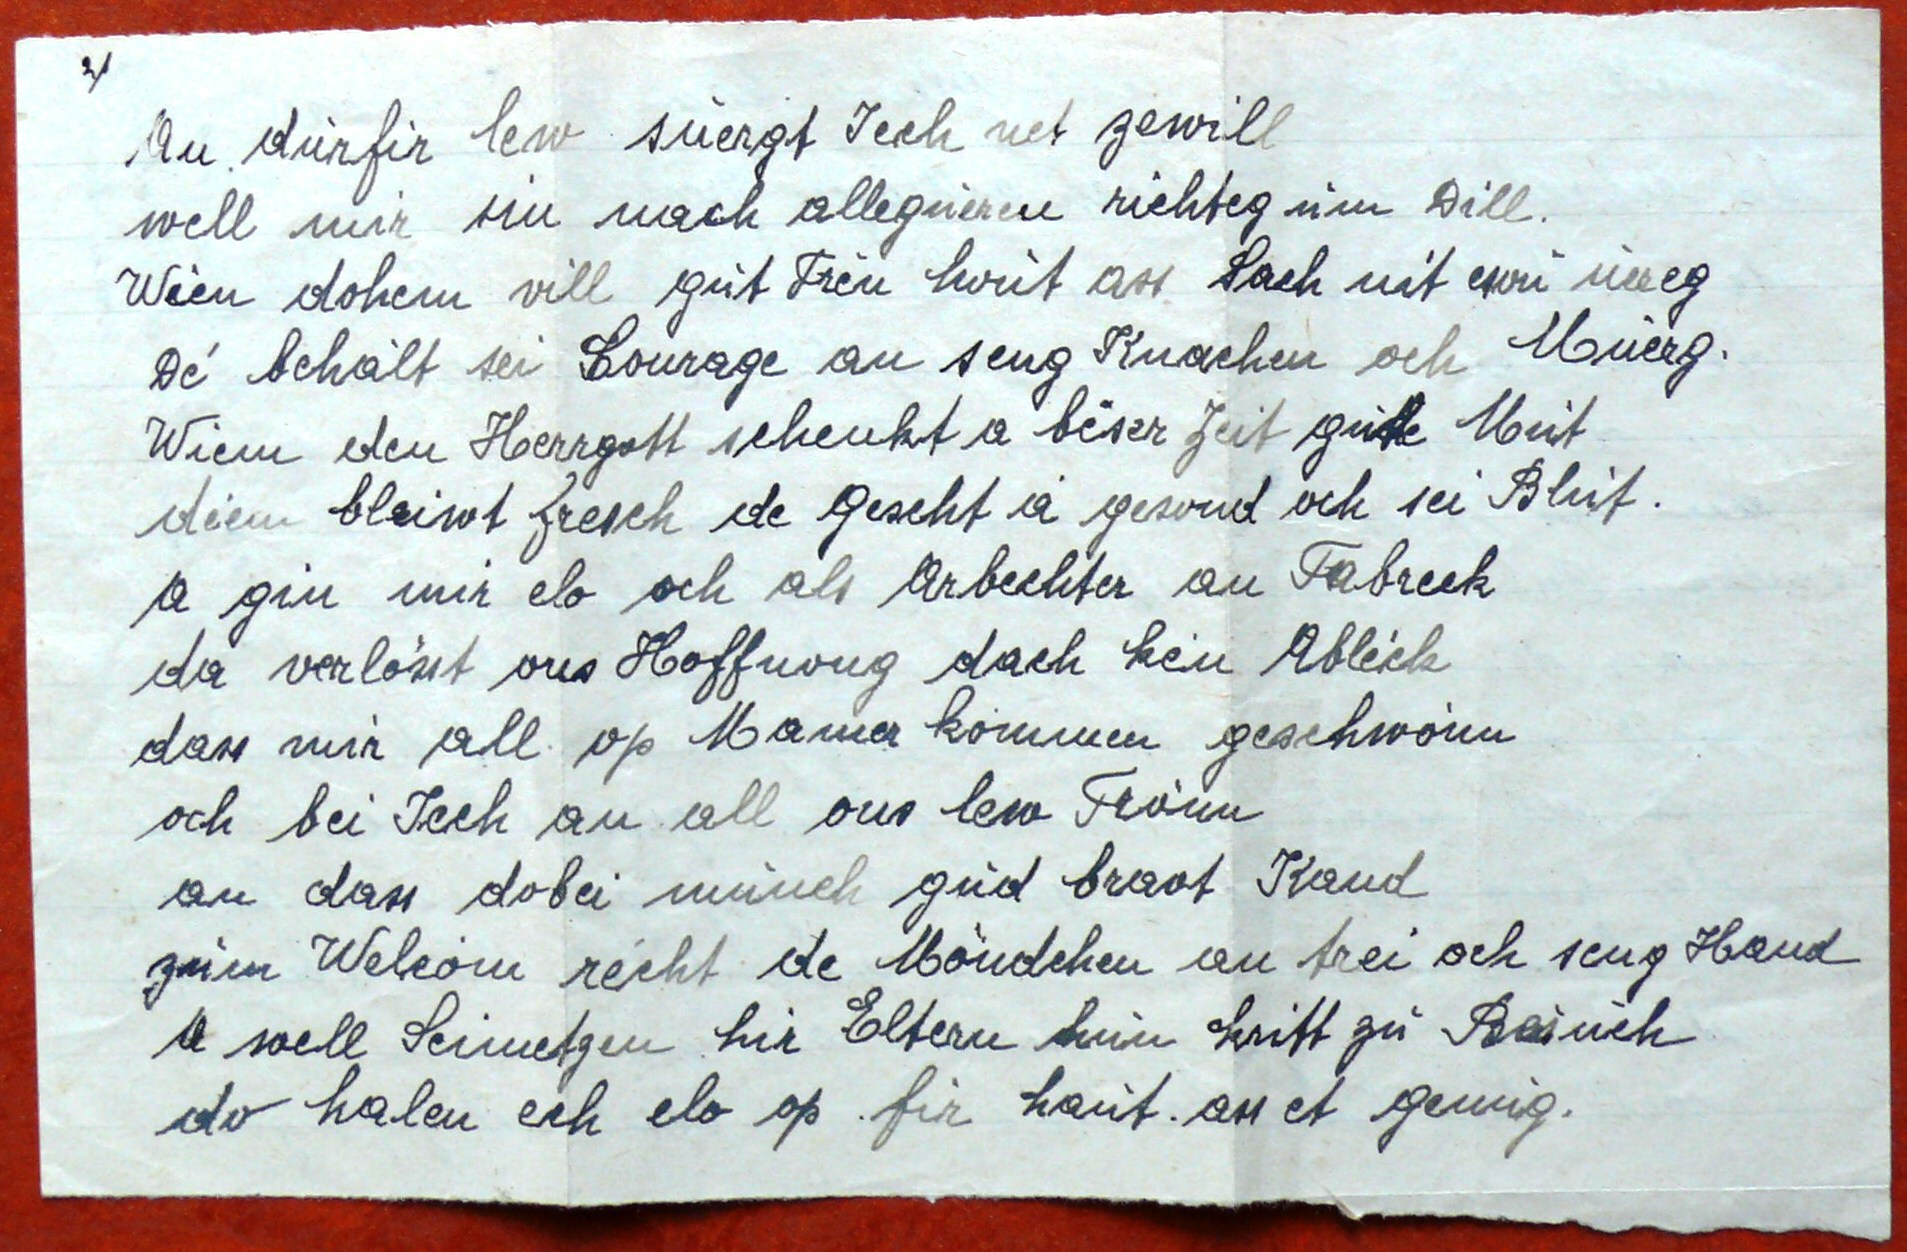 2/
An dùrfir lew sùergt Iech net zevill
well mir sin nach alleguereu richteg ùm Dill.
Wien dohem vill gùt Frën hoùt ass Sach nit esou ùreg
Dé behält sei Courage an seng Knachen och Mùerg.
Wiem den Herrgott schenkt a béser Zeit gùtte Mùt
diem bleiwt fresch de Gescht a gesond och sei Blùt.
A gin mir elo och als Arbechter an Fabreck
da verlösst ons Hoffnong dach kén Ableck
dass mir all op Mamer kommen geschwönn
och bei Iech an all ons lew Frönn
an dass dobei mùnch gùd bravt Kand
zùm Welkom recht de Möndchen an trei och seng Hand
A well Seimetzen hir Eltern hùn kritt zù Besùch
do halen ech elo op fir haùt ass et genùg.